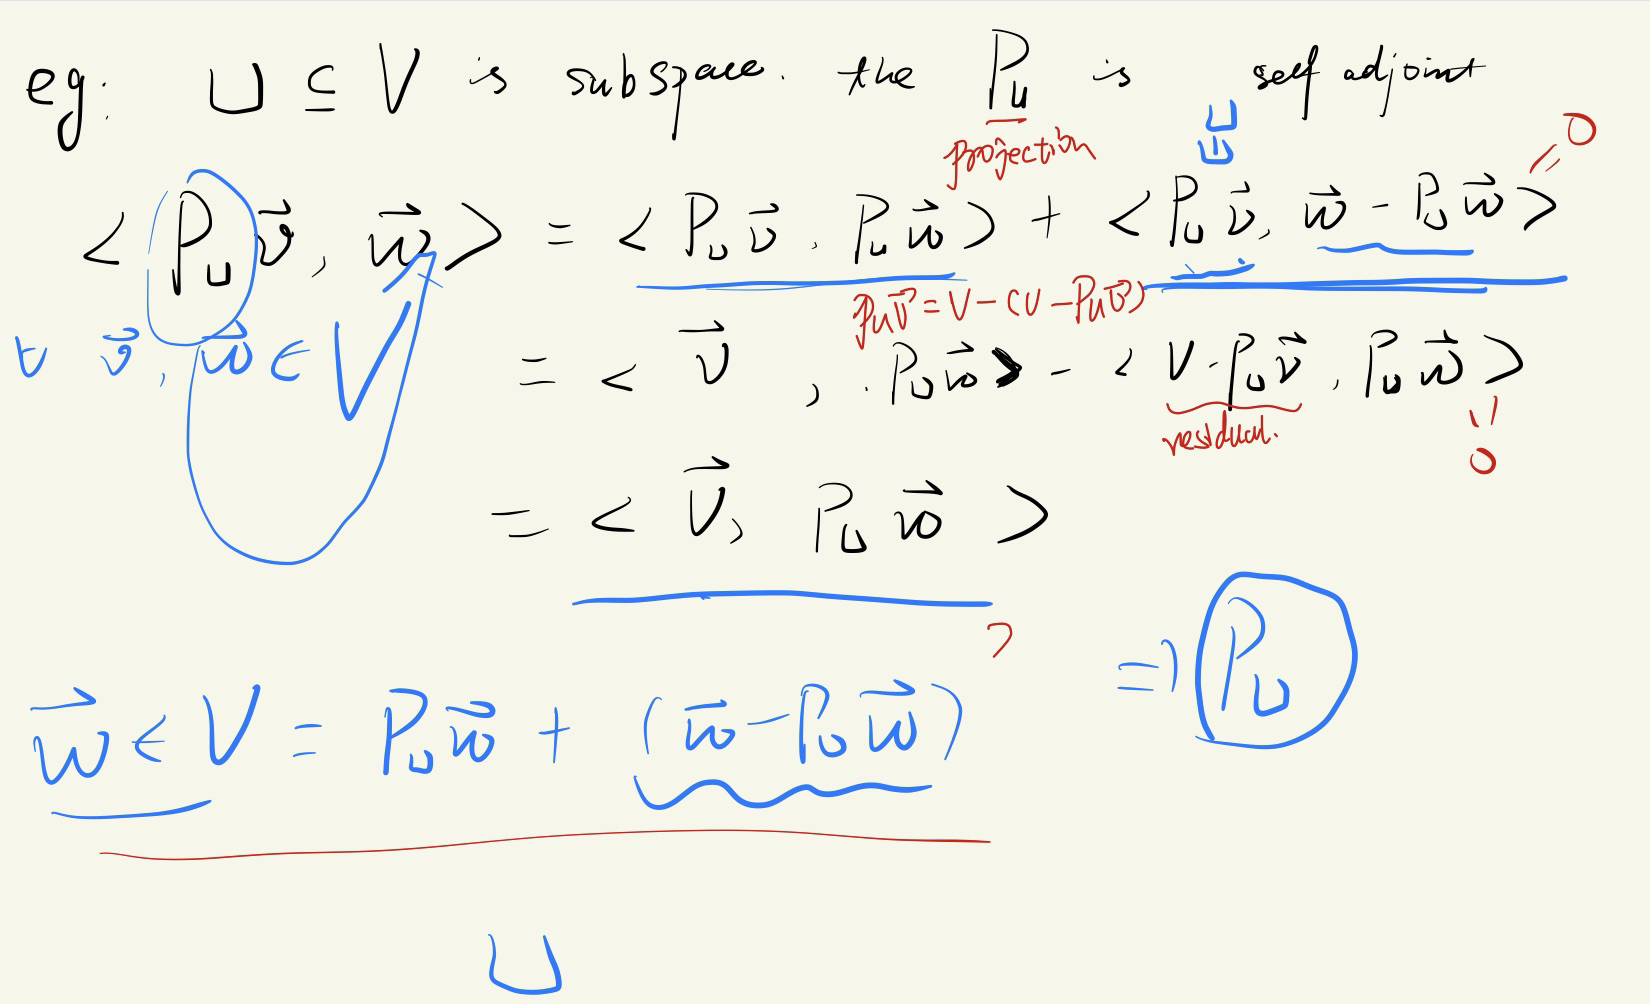 eg: U ⊆ V is subspace. the P_U is self adjoint
projection
U
⊍
< P_U v⃗, w⃗ > = < P_U v⃗, P_U w⃗ > + < P_U v⃗, w⃗ - P_U w⃗ > = 0
P_U v⃗ = V - (V - P_U v⃗)
∀ v⃗, w⃗ ∈ V
= < v⃗, P_U w⃗ > - < V - P_U v⃗, P_U w⃗ >
residual. = 0
= < v⃗, P_U w⃗ >
⇒ P_U
w⃗ ∈ V = P_U w⃗ + (w⃗ - P_U w⃗)
U